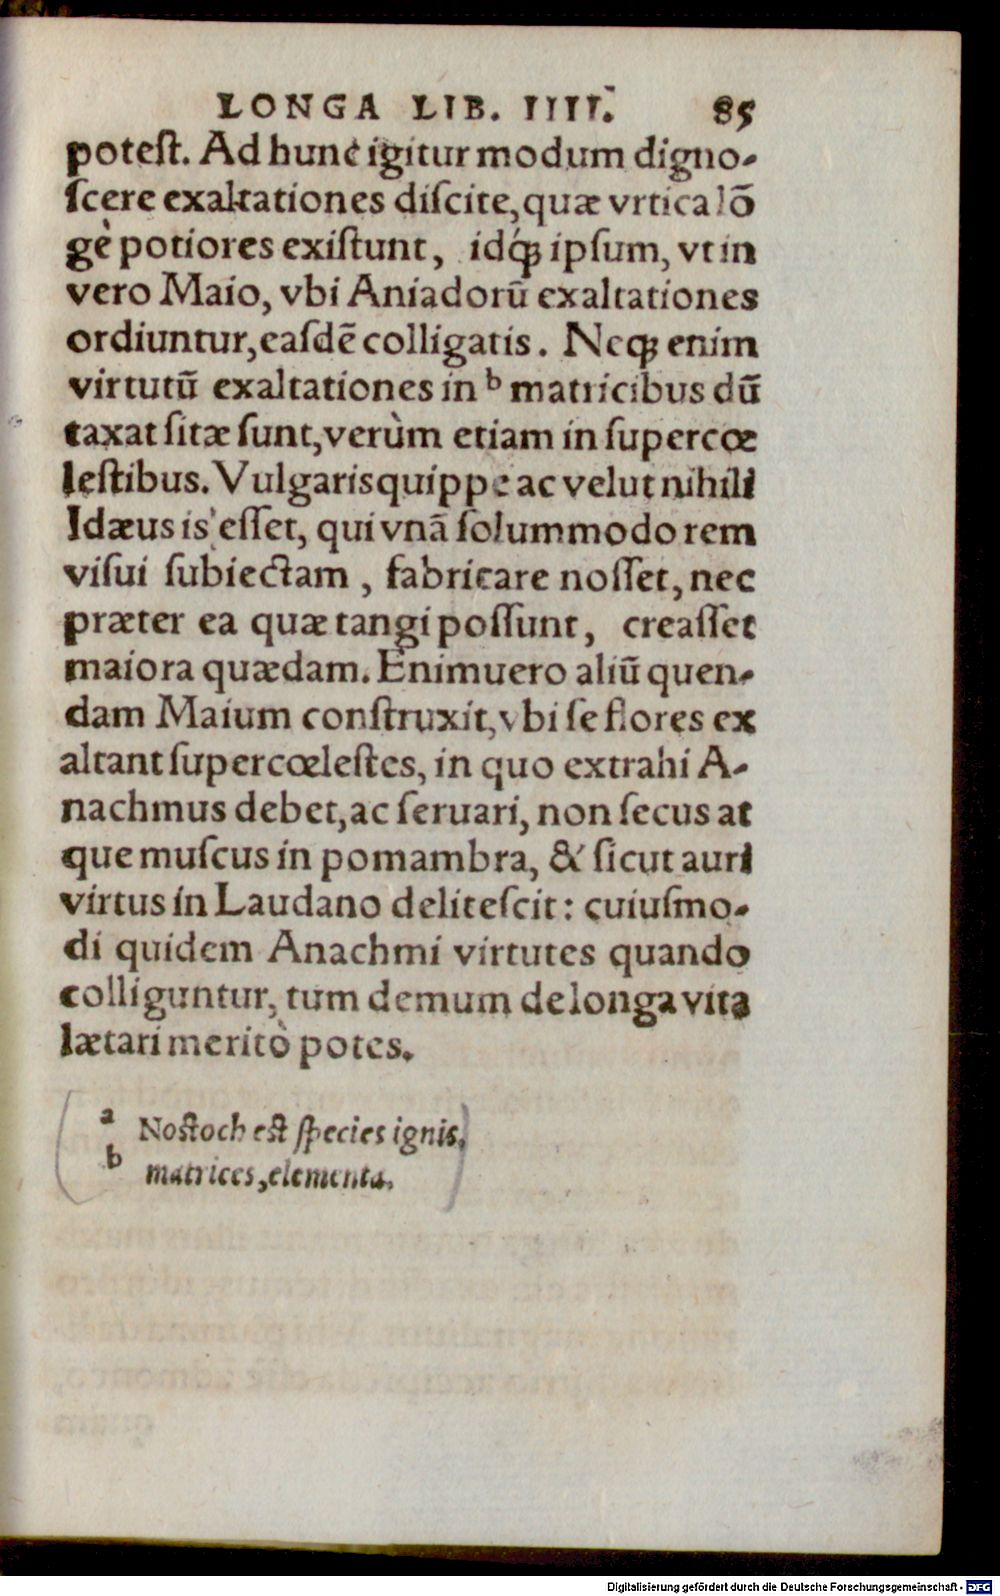 LONGA LIB. IIII. 85
poteſt. Ad hunc igitur modum digno-
ſcere exaltationes diſcite, quæ vrtica lõ
gè potiores exiſtunt, idq́ꝫ ipſum, vt in
vero Maio, vbi Aniadorũ exaltationes
ordiuntur, eaſdẽ colligatis. Neqꝫ enim
virtutũ exaltationes in ᵇ matricibus dũ
taxat ſitæ ſunt, verùm etiam in ſupercœ
leſtibus. Vulgaris quippe ac velut nihili
Idæus is eſſet, qui vnã ſolummodo rem
viſui ſubiectam, fabricare noſſet, nec
præter ea quæ tangi poſſunt, creaſſet
maiora quædam. Enimuero aliũ quen-
dam Maium conſtruxit, vbi ſe flores ex
altant ſupercœleſtes, in quo extrahi A-
nachmus debet, ac ſeruari, non ſecus at
que muſcus in pomambra, & ſicut auri
virtus in Laudano deliteſcit: cuiuſmo-
di quidem Anachmi virtutes quando
colliguntur, tum demum de longa vita
lætari meritò potes.
a Noſtoch eſt ſpecies ignis.
b matrices, elementa.
Digitalisierung gefördert durch die Deutsche Forschungsgemeinschaft - DFG